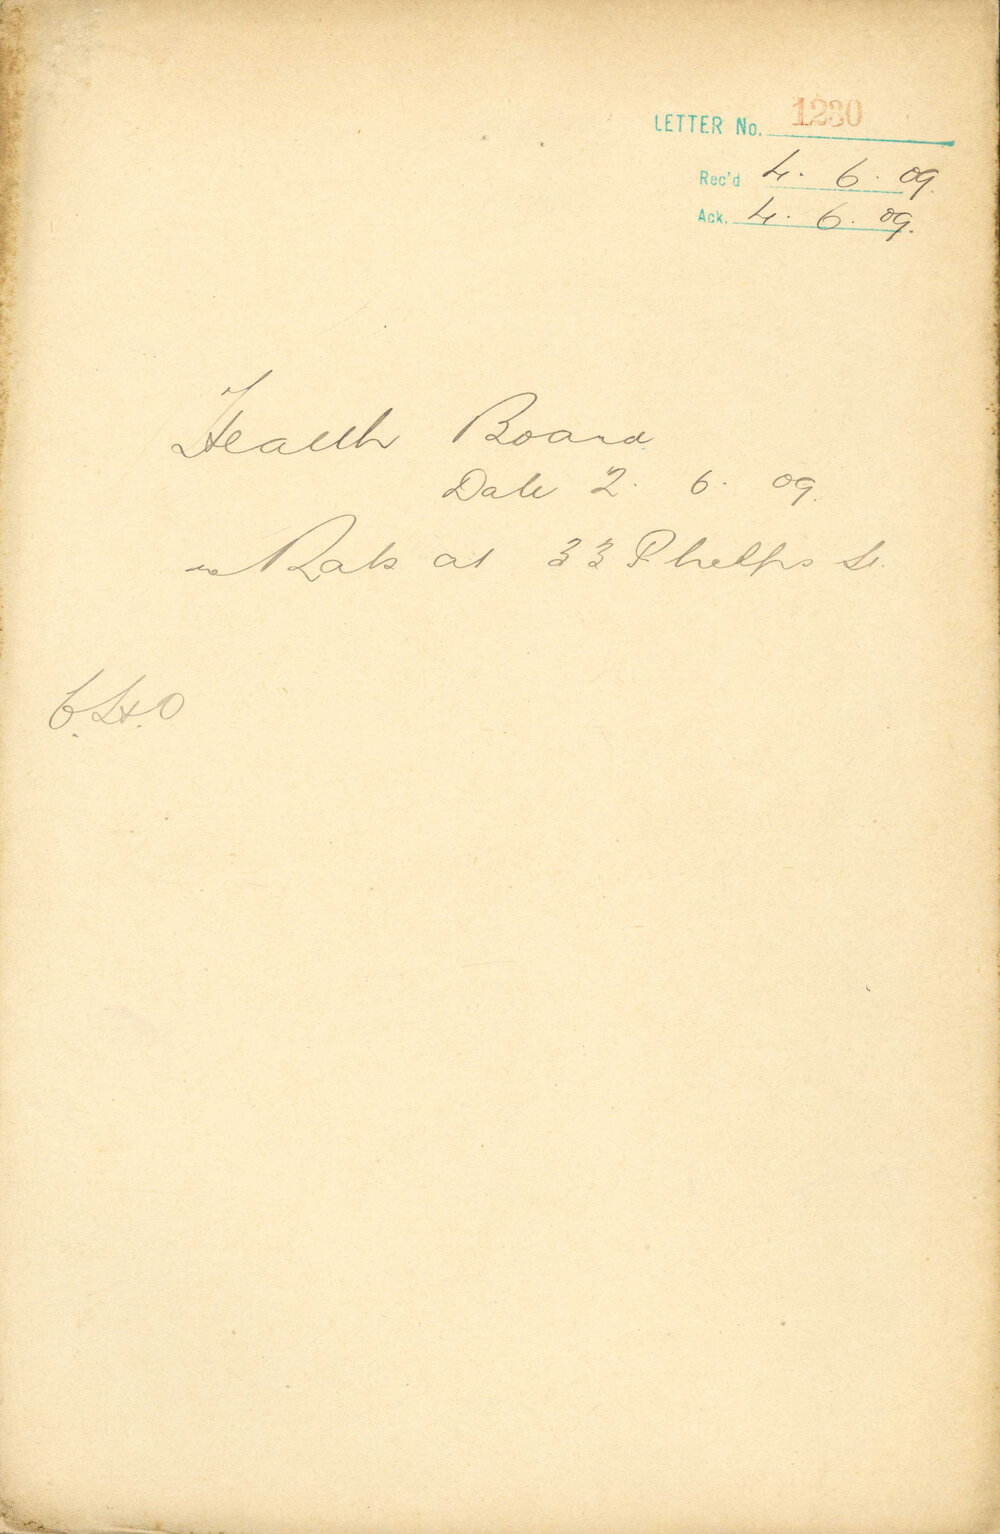 LETTER No. 1230
Rec'd 4. 6. 09.
Ack. 4. 6. 09.
Health Board
Date 2. 6. 09.
re Rats at 33 Phelps St.
C.H.O